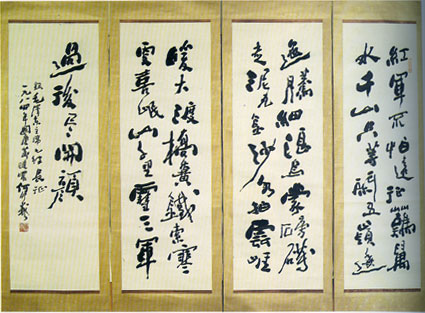 紅軍不怕遠征難萬
水千山只等閒五嶺逶
迤騰細浪烏蒙磅礴
走泥丸金沙水拍雲崖
暖大渡橋橫鐵索寒
更喜岷山千里雪三軍
過後尽開顏
毛澤東主席七律長征
一九八四年國慶